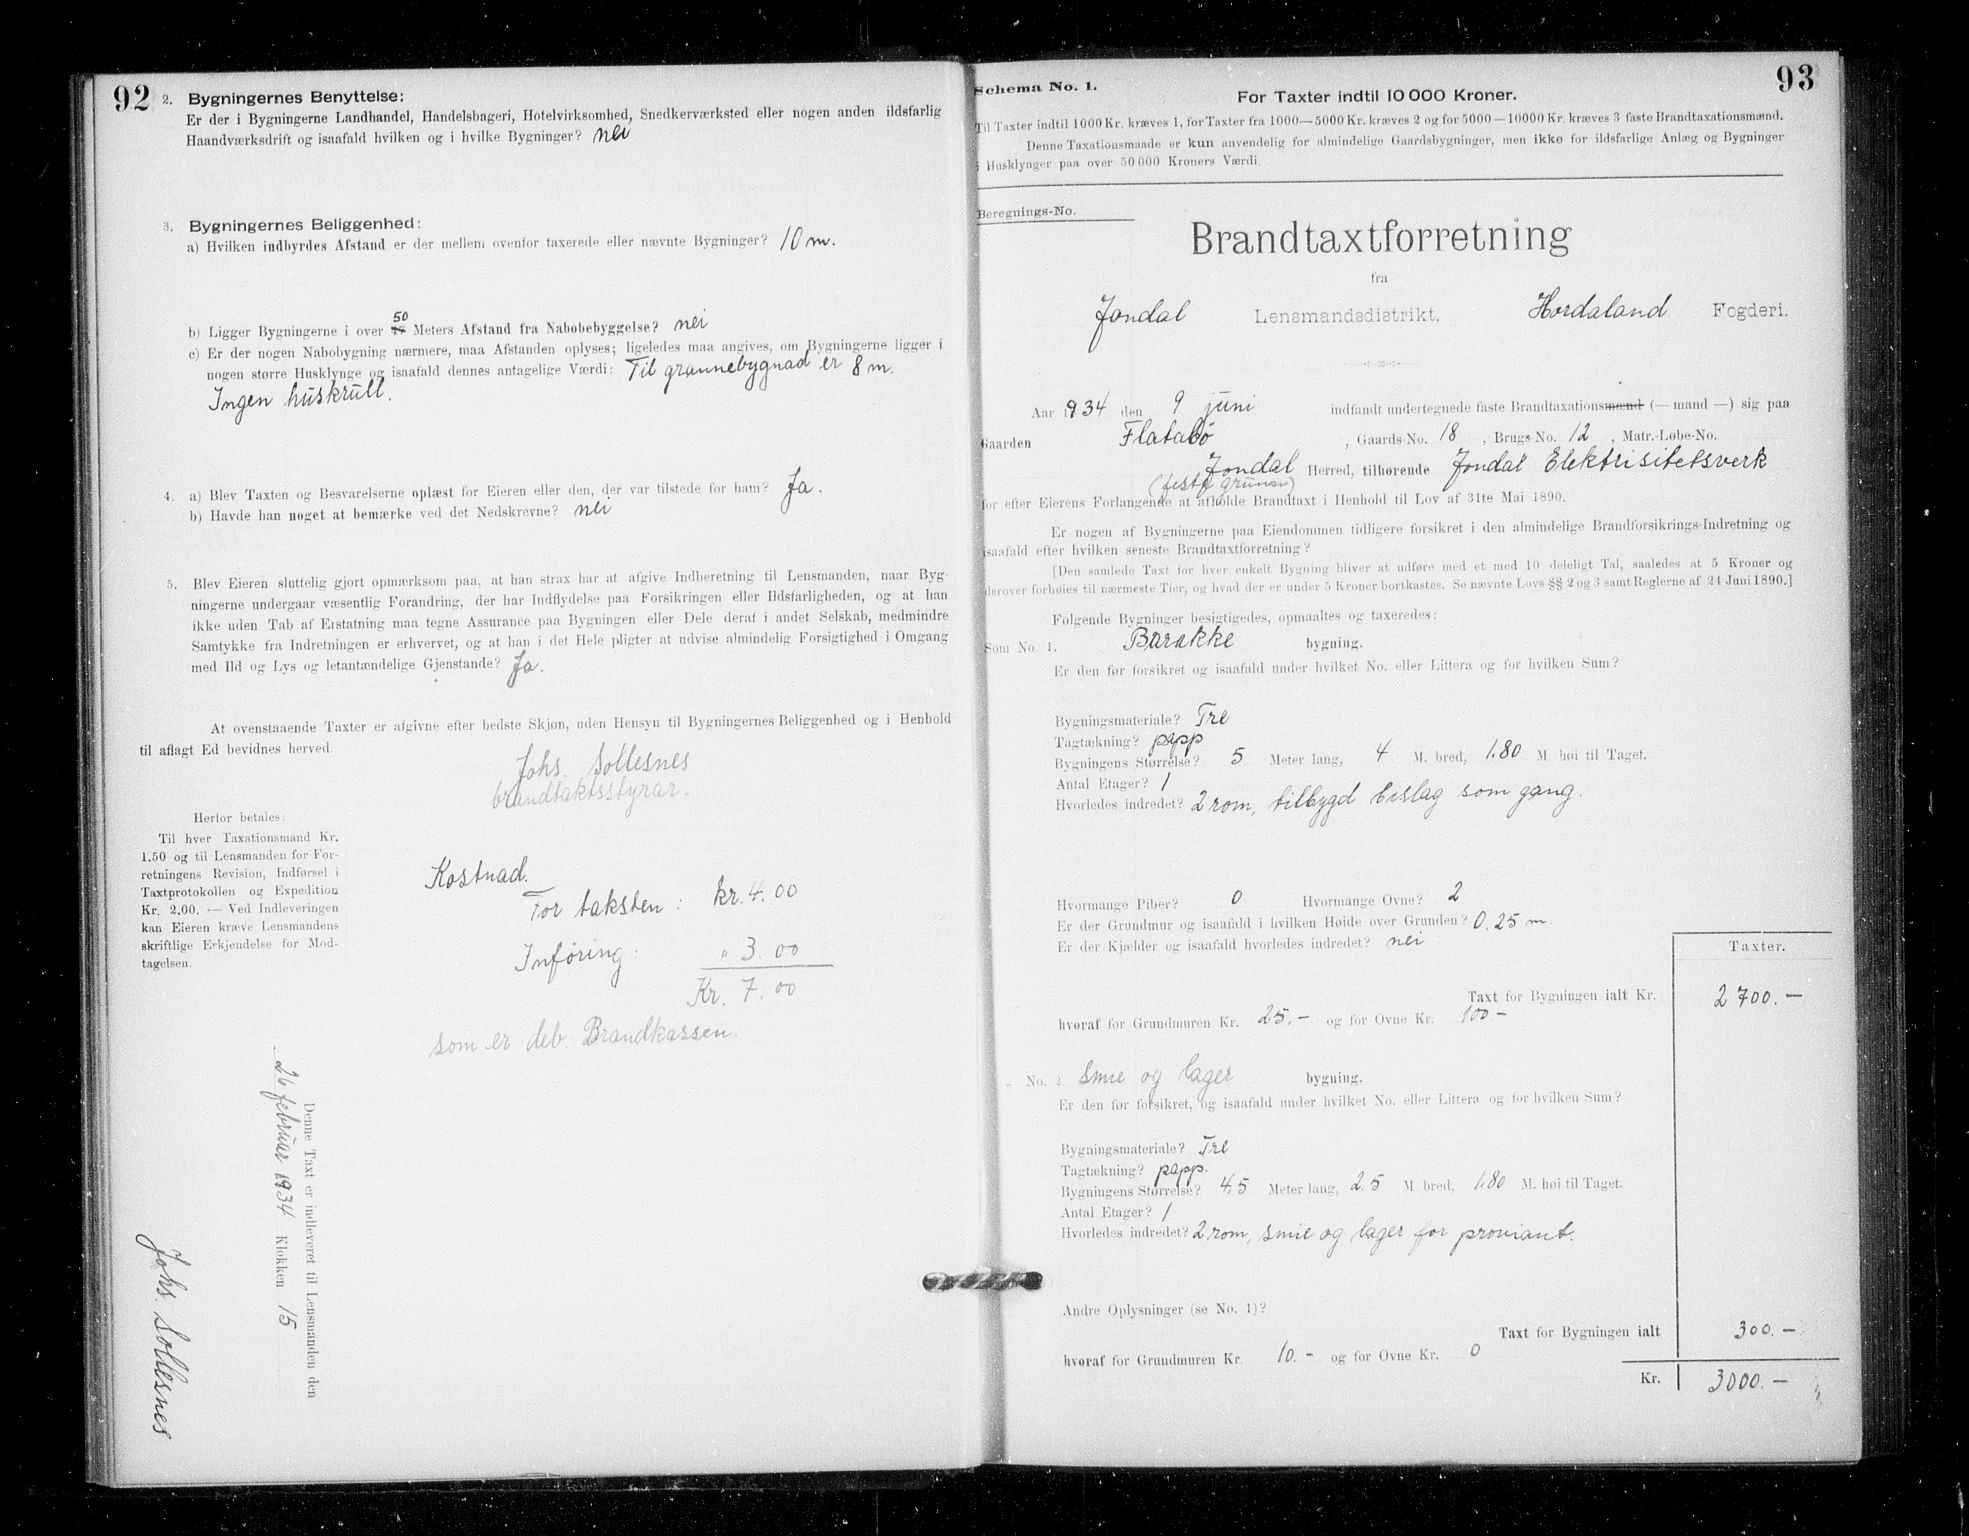 92
2. Bygningernes Benyttelse:
Er der i Bygningerne Landhandel, Handelsbageri, Hotelvirksomhed, Snedkerværksted eller nogen anden ildsfarlig
Haandværksdrift og isaafald hvilken og i hvilke Bygninger? nei
3. Bygningernes Beliggenhed:
a) Hvilken indbyrdes Afstand er der mellem ovenfor taxerede eller nævnte Bygninger? 10 m.
50
b) Ligger Bygningerne i over Meters Afstand fra Nabobebyggelse? nei
c) Er der nogen Nabobygning nærmere, maa Afstanden oplyses; ligeledes maa angives, om Bygningerne ligger i
nogen større Husklynge og isaafald dennes antagelige Værdi: Til grannebygnad er 8 m.
Ingen huskrull.
4. a) Blev Taxten og Besvarelserne oplæst for Eieren eller den, der var tilstede for ham? Ja.
b) Havde han noget at bemærke ved det Nedskrevne? nei
5. Blev Eieren sluttelig gjort opmærksom paa, at han strax har at afgive Indberetning til Lensmanden, naar Byg-
ningerne undergaar væsentlig Forandring, der har Indflydelse paa Forsikringen eller Ildsfarligheden, og at han
ikke uden Tab af Erstatning maa tegne Assurance paa Bygningen eller Dele deraf i andet Selskab, medmindre
Samtykke fra Indretningen er erhvervet, og at han i det Hele pligter at udvise almindelig Forsigtighed i Omgang
med Ild og Lys og letantændelige Gjenstande? Ja.
At ovenstaaende Taxter er afgivne efter bedste Skjøn, uden Hensyn til Bygningernes Beliggenhed og i Henhold
til aflagt Ed bevidnes herved.
Johs. Sollesnes
brandtaktsstyrar.
Herfor betales:
Til hver Taxationsmand Kr.
1.50 og til Lensmanden for For-
retningens Revision, Indførsel i
Taxtprotokollen og Expedition
Kr. 2.00. — Ved Indleveringen
kan Eieren kræve Lensmandens
skriftlige Erkjendelse for Mod-
tagelsen.
Kostnad.
For taksten: kr. 4.00
Inføring: " 3.00
Kr. 7.00
som er deb. Brandkassen.
Denne Taxt er indleveret til Lensmanden den
26 februar 1934 Klokken 15
Johs. Sollesnes
93
Schema No. 1.
For Taxter indtil 10 000 Kroner.
Til Taxter indtil 1000 Kr. kræves 1, for Taxter fra 1000—5000 Kr. kræves 2 og for 5000—10000 Kr. kræves 3 faste Brandtaxationsmænd.
Denne Taxationsmaade er kun anvendelig for almindelige Gaardsbygninger, men ikke for ildsfarlige Anlæg og Bygninger
i Husklynger paa over 50 000 Kroners Værdi.
Beregnings-No.
Brandtaxtforretning
fra
Jondal Lensmandsdistrikt, Hordaland Fogderi.
Aar 1934 den 9 juni indfandt undertegnede faste Brandtaxationsmænd (— mand —) sig paa
Gaarden Flatabø, Gaards-No. 18, Brugs-No. 12, Matr.-Løbe-No.
Jondal Herred, tilhørende Jondal Elektrisitetsverk
(feste grunn)
for efter Eierens Forlangende at afholde Brandtaxt i Henhold til Lov af 31te Mai 1890.
Er nogen af Bygningerne paa Eiendommen tidligere forsikret i den almindelige Brandforsikrings-Indretning og
isaafald efter hvilken seneste Brandtaxtforretning?
[Den samlede Taxt for hver enkelt Bygning bliver at udføre med et med 10 deleligt Tal, saaledes at 5 Kroner og
derover forhøies til nærmeste Tier, og hvad der er under 5 Kroner bortkastes. Se nævnte Lovs §§ 2 og 3 samt Reglerne af 24 Juni 1890.]
Følgende Bygninger besigtigedes, opmaaltes og taxeredes:
Som No. 1. Barakke bygning.
Er den før forsikret og isaafald under hvilket No. eller Littera og for hvilken Sum?
Bygningsmateriale? Tre
Tagtækning? papp
Bygningens Størrelse? 5 Meter lang, 4 M. bred, 1.80 M. høi til Taget.
Antal Etager? 1
Hvorledes indredet? 2 rom, tilbygd bislag som gang.
Hvormange Piber? 0 Hvormange Ovne? 2
Er der Grundmur og isaafald i hvilken Høide over Grunden? 0.25 m.
Er der Kjælder og isaafald hvorledes indredet? nei
Taxter.
Taxt for Bygningen ialt Kr. 2700.—
hvoraf for Grundmuren Kr. 25.— og for Ovne Kr. 100—
" No. 2 Smie og lager bygning.
Er den før forsikret, og isaafald under hvilket No. eller Littera og for hvilken Sum?
Bygningsmateriale? Tre
Tagtækning? papp.
Bygningens Størrelse? 4.5 Meter lang, 2.5 M bred, 1.80 M. høi til Taget.
Antal Etager? 1
Hvorledes indredet? 2 rom, smie og lager for proviant.
Andre Oplysninger (se No. 1)?
Taxt for Bygningen ialt 300.—
hvoraf for Grundmuren Kr. 10.— og for Ovne Kr. 0
Kr. 3000.—